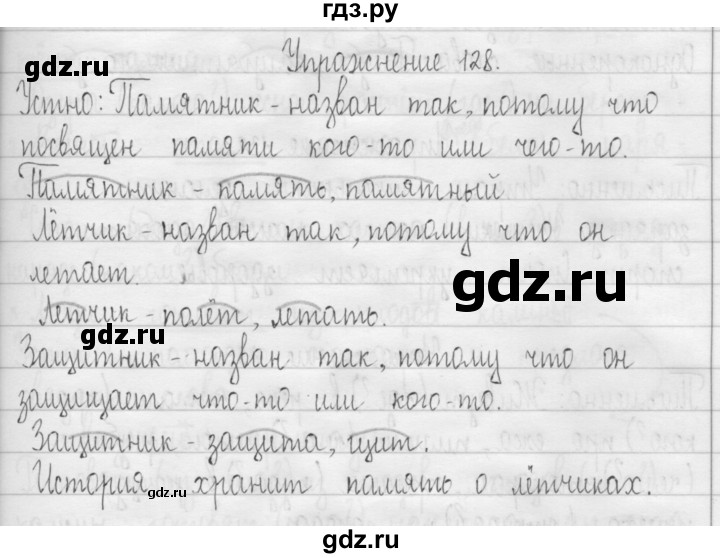 гдз.ру
Упражнение 128.
gdz.ru
Устно: Памятник - назван так, потому что
посвящен памяти кого-то или чего-то.
Памятник - память, памятный
Лётчик - назван так, потому что он
летает.
gdz.ru
Летчик - полёт, летать.
gdz.ru
Защитник - назван так, потому что он
защищает что-то или кого-то.
Защитник - защита, щит.
История хранит память о лётчиках.
gdz.ru
gdz.ru